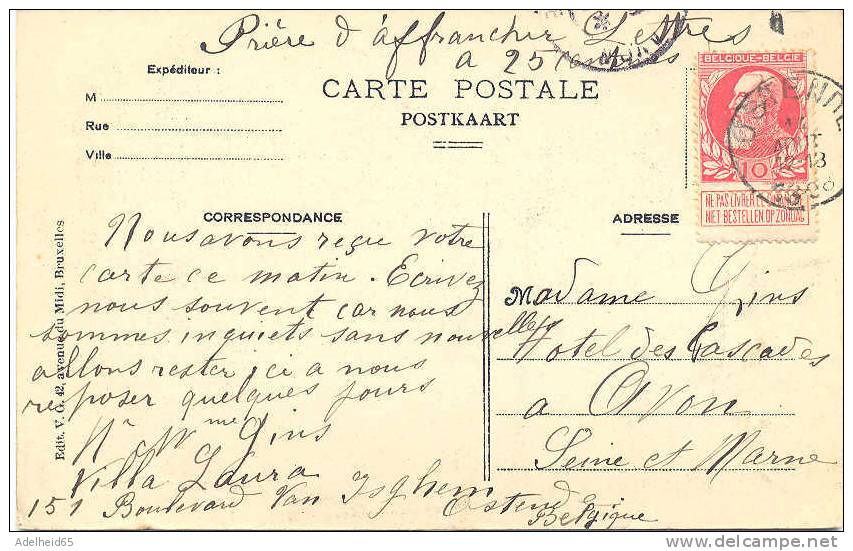 Prière d'affrancher Lettres
a 25 centimes
Expéditeur :
M
Rue
Ville
CARTE POSTALE
POSTKAART
BELGIQUE-BELGIE
10
NE PAS LIVRER LE DIMANCHE
NIET BESTELLEN OP ZONDAG
OSTENDE
AOUT
12-13
CORRESPONDANCE
Nous avons reçu votre
carte ce matin. Ecrivez
nous souvent car nous
sommes inquiets sans nouvelles
allons rester ici a nous
reposer quelques jours
Mr & Mme Gins
Villa Laura
151 Boulevard Van Iseghem
Ostende
Belgique
ADRESSE
Madame Gins
Hotel des Cascades
a Avon
Seine et Marne
Edit. V. G. 42, avenue du Midi, Bruxelles
© Adelheid65
http://www.delcampe.net